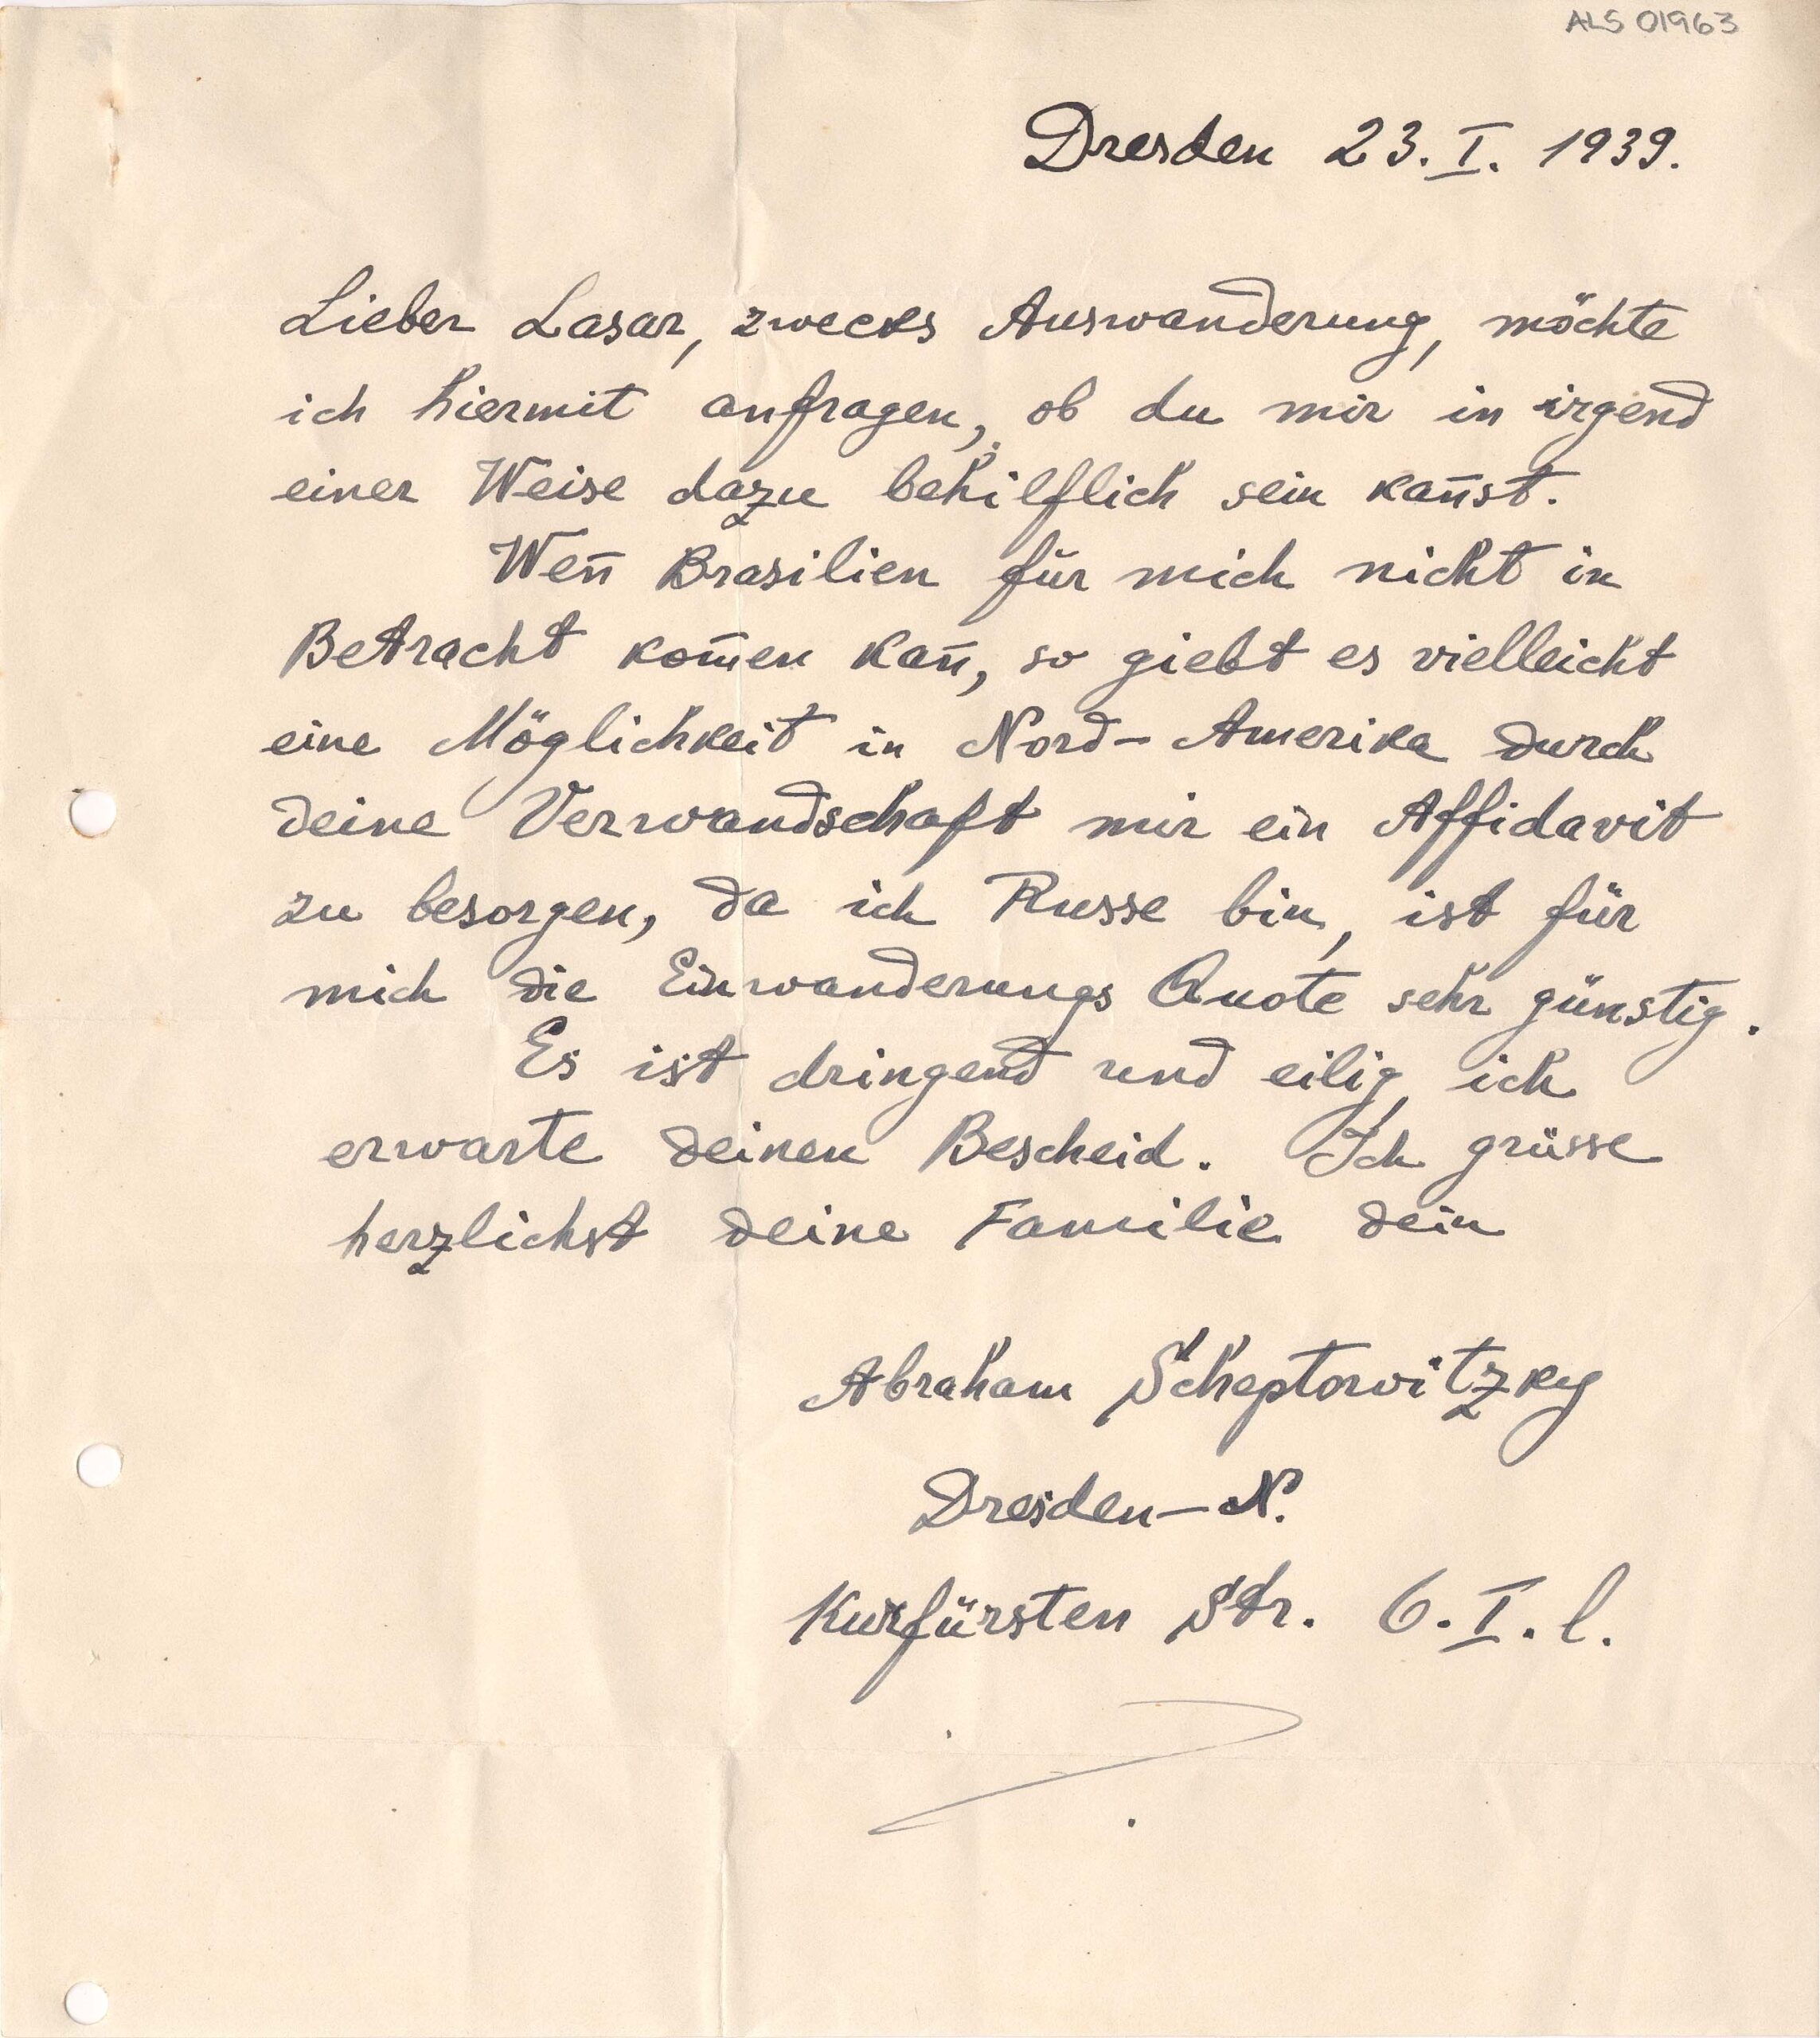 ALS 01963
Dresden 23. I. 1939.
Lieber Lasar, zwecks Auswanderung, möchte
ich hiermit anfragen, ob du mir in irgend
einer Weise dazu behilflich sein kan̄st.
Wen̄ Brasilien für mich nicht in
Betracht kom̄en kan̄, so giebt es vielleicht
eine Möglichkeit in Nord-Amerika durch
deine Verwandschaft mir ein Affidavit
zu besorgen, da ich Russe bin, ist für
mich die Einwanderungs Quote sehr günstig.
Es ist dringend und eilig, ich
erwarte deinen Bescheid. Ich grüsse
herzlichst deine Familie dein
Abraham Scheptowitzky
Dresden-N.
Kurfürsten Str. 6. I. l.